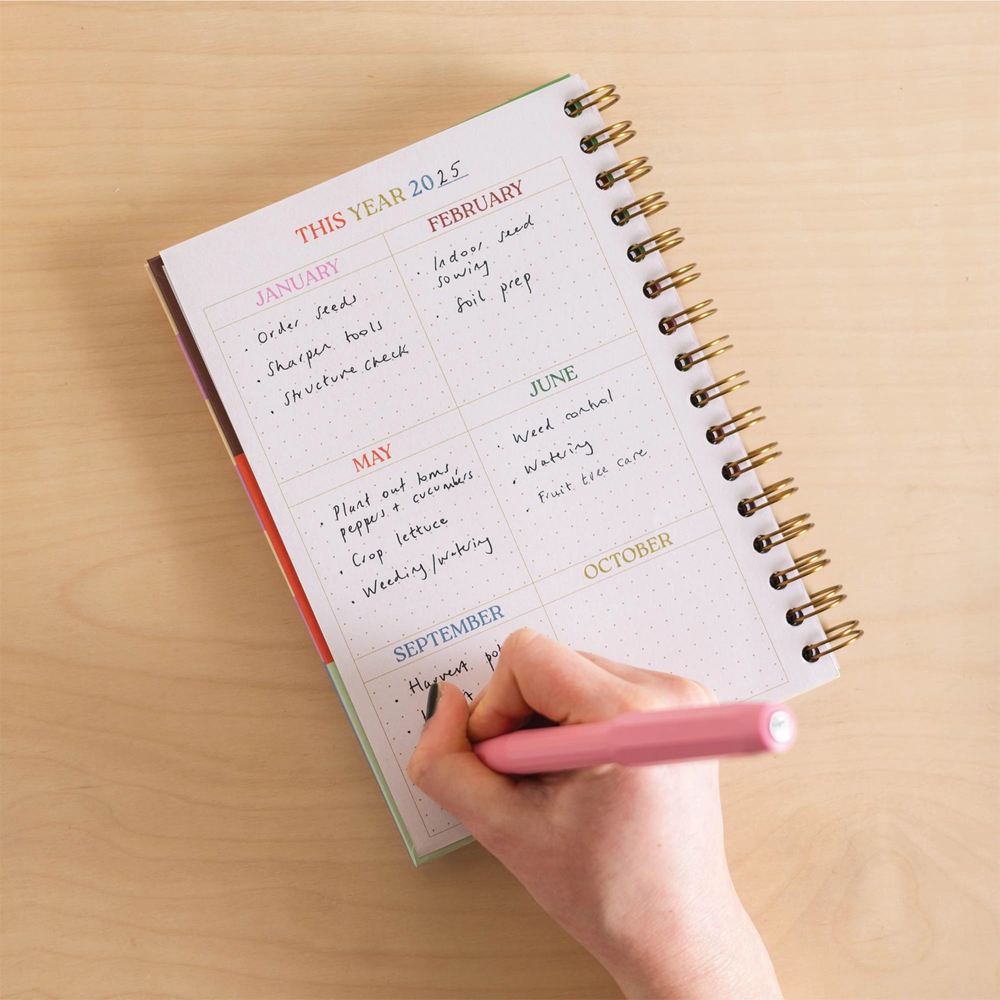 THIS YEAR 2025
JANUARY
• Order seeds
• Sharpen tools
• Structure check
FEBRUARY
• Indoor seed
sowing
• Soil prep
MAY
• Plant out toms,
peppers + cucumbers
• Crop lettuce
• Weeding/watering
JUNE
• Weed control
• Watering
• Fruit tree care
SEPTEMBER
• Harvest
•
OCTOBER